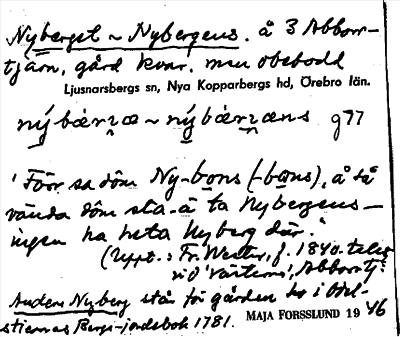 Nyberget ~ Nybergens. å 3 Abborr-
tjärn, gård kvar, men obebodd
Ljusnarsbergs sn, Nya Kopparbergs hd, Örebro län.
ný bær 
'Förr sa döm Ny-bons (-bons), å så
vända döm sta å ta Nybergens –
ingen ha heta Nyberg där."
(Uppt.: Fr. Wester, f. 1840-talet
vid Abborrtj.
Anders Nyberg står för gården i Odel-
stiernas Bergs-jordebok 1781.
MAJA FORSSLUND 1946